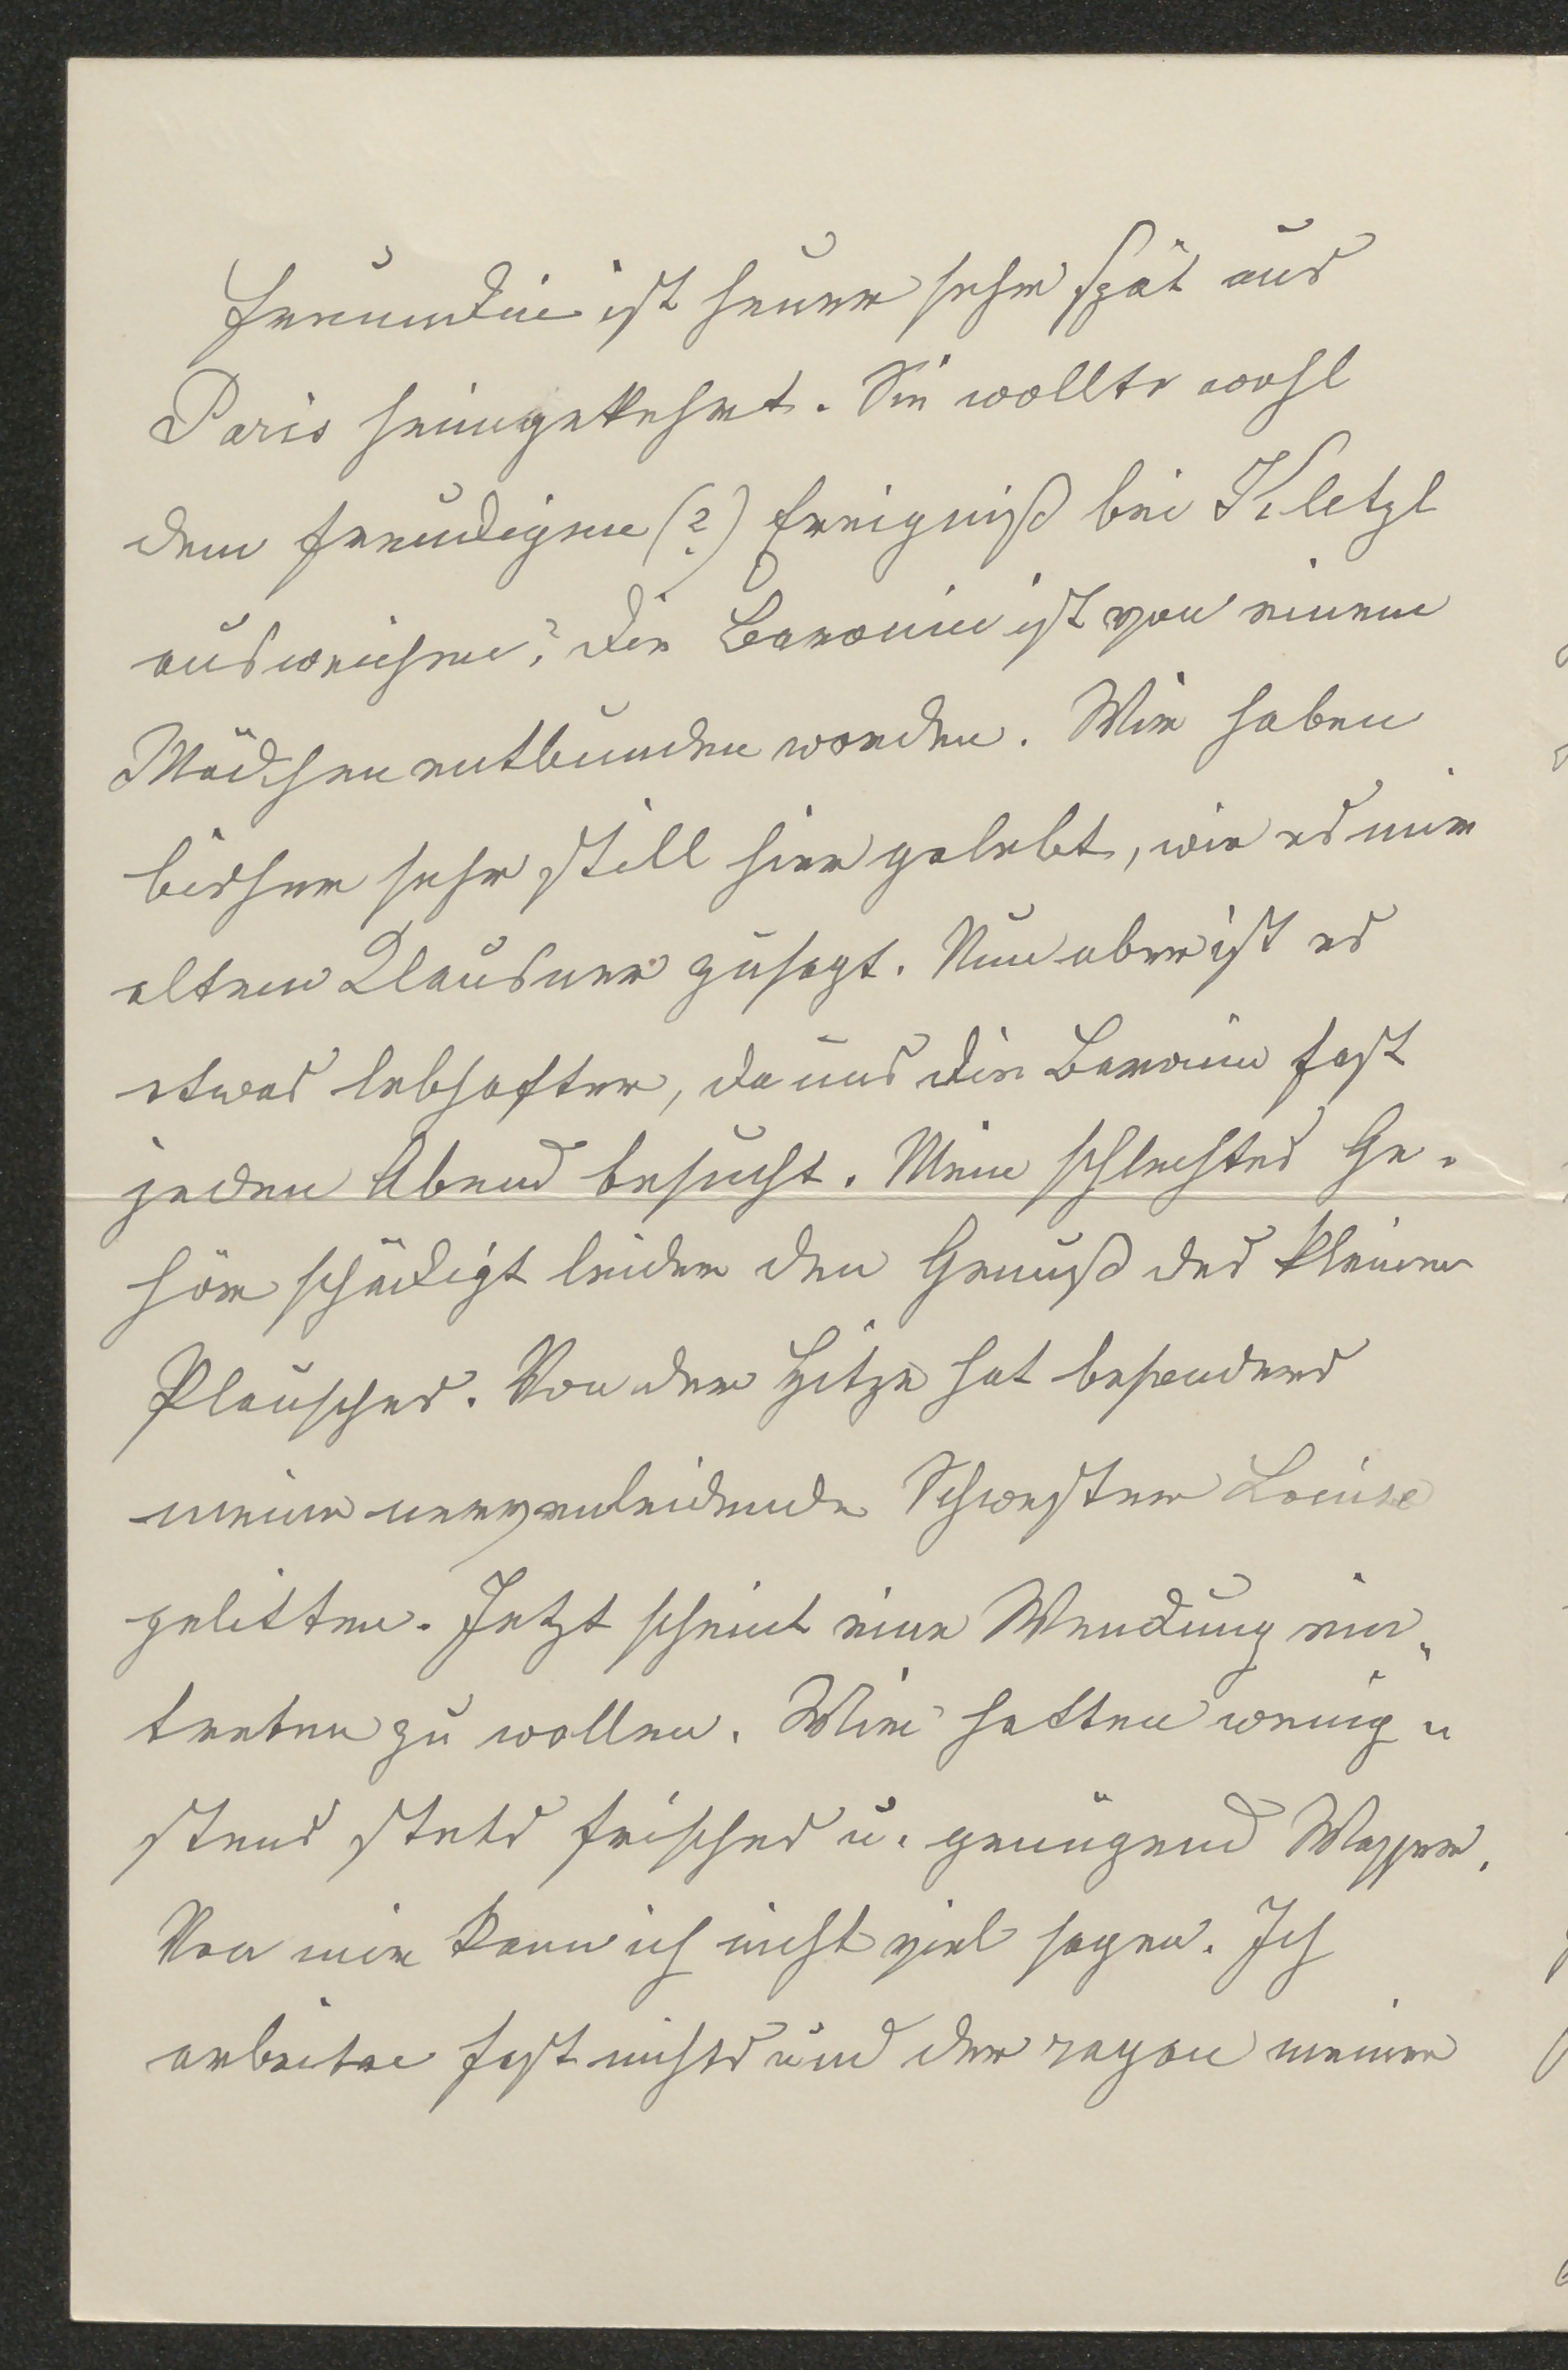 Freundin ist heuer sehr spät aus
Paris heimgekehrt. Sie wollte wohl
dem freudigen (?) Ereigniß bei Kletzl
ausweichen? Die Baronin ist von einem
Mädchen entbunden worden. Wir haben
bisher sehr still hier gelebt, wie es mir
altem Clausner zusagt. Nun aber ist es
etwas lebhafter, da uns die Baronin fast
jeden Abend besucht. Mein schlechtes Ge-
hör schädigt leider den Genuß des kleinen
Plausches. Von der Hitze hat besonders
meine nervenleidende Schwester Louise
gelitten. Jetzt scheint eine Wendung ein-
treten zu wollen. Wir hatten wenig-
stens stets frisches u. genügend Wasser.
Von mir kann ich nicht viel sagen. Ich
arbeite fast nichts und der rayon meiner